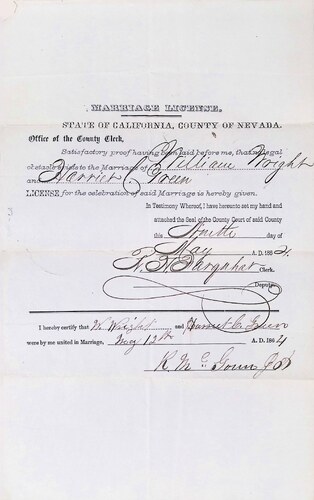 MARRIAGE LICENSE.
STATE OF CALIFORNIA, COUNTY OF NEVADA.
Office of the County Clerk,
Satisfactory proof having been laid before me, that no legal
obstacle exists to the Marriage of William Wright
and Harriet C. Green
LICENSE for the celebration of said Marriage is hereby given.
In Testimony Whereof, I have hereunto set my hand and
attached the Seal of the County Court of said County
this Ninth day of
May A. D. 1864.
Farquhar Clerk.
Deputy.
I hereby certify that W. Wright and Harriet C. Green
were by me united in Marriage, May 12th A. D. 1864